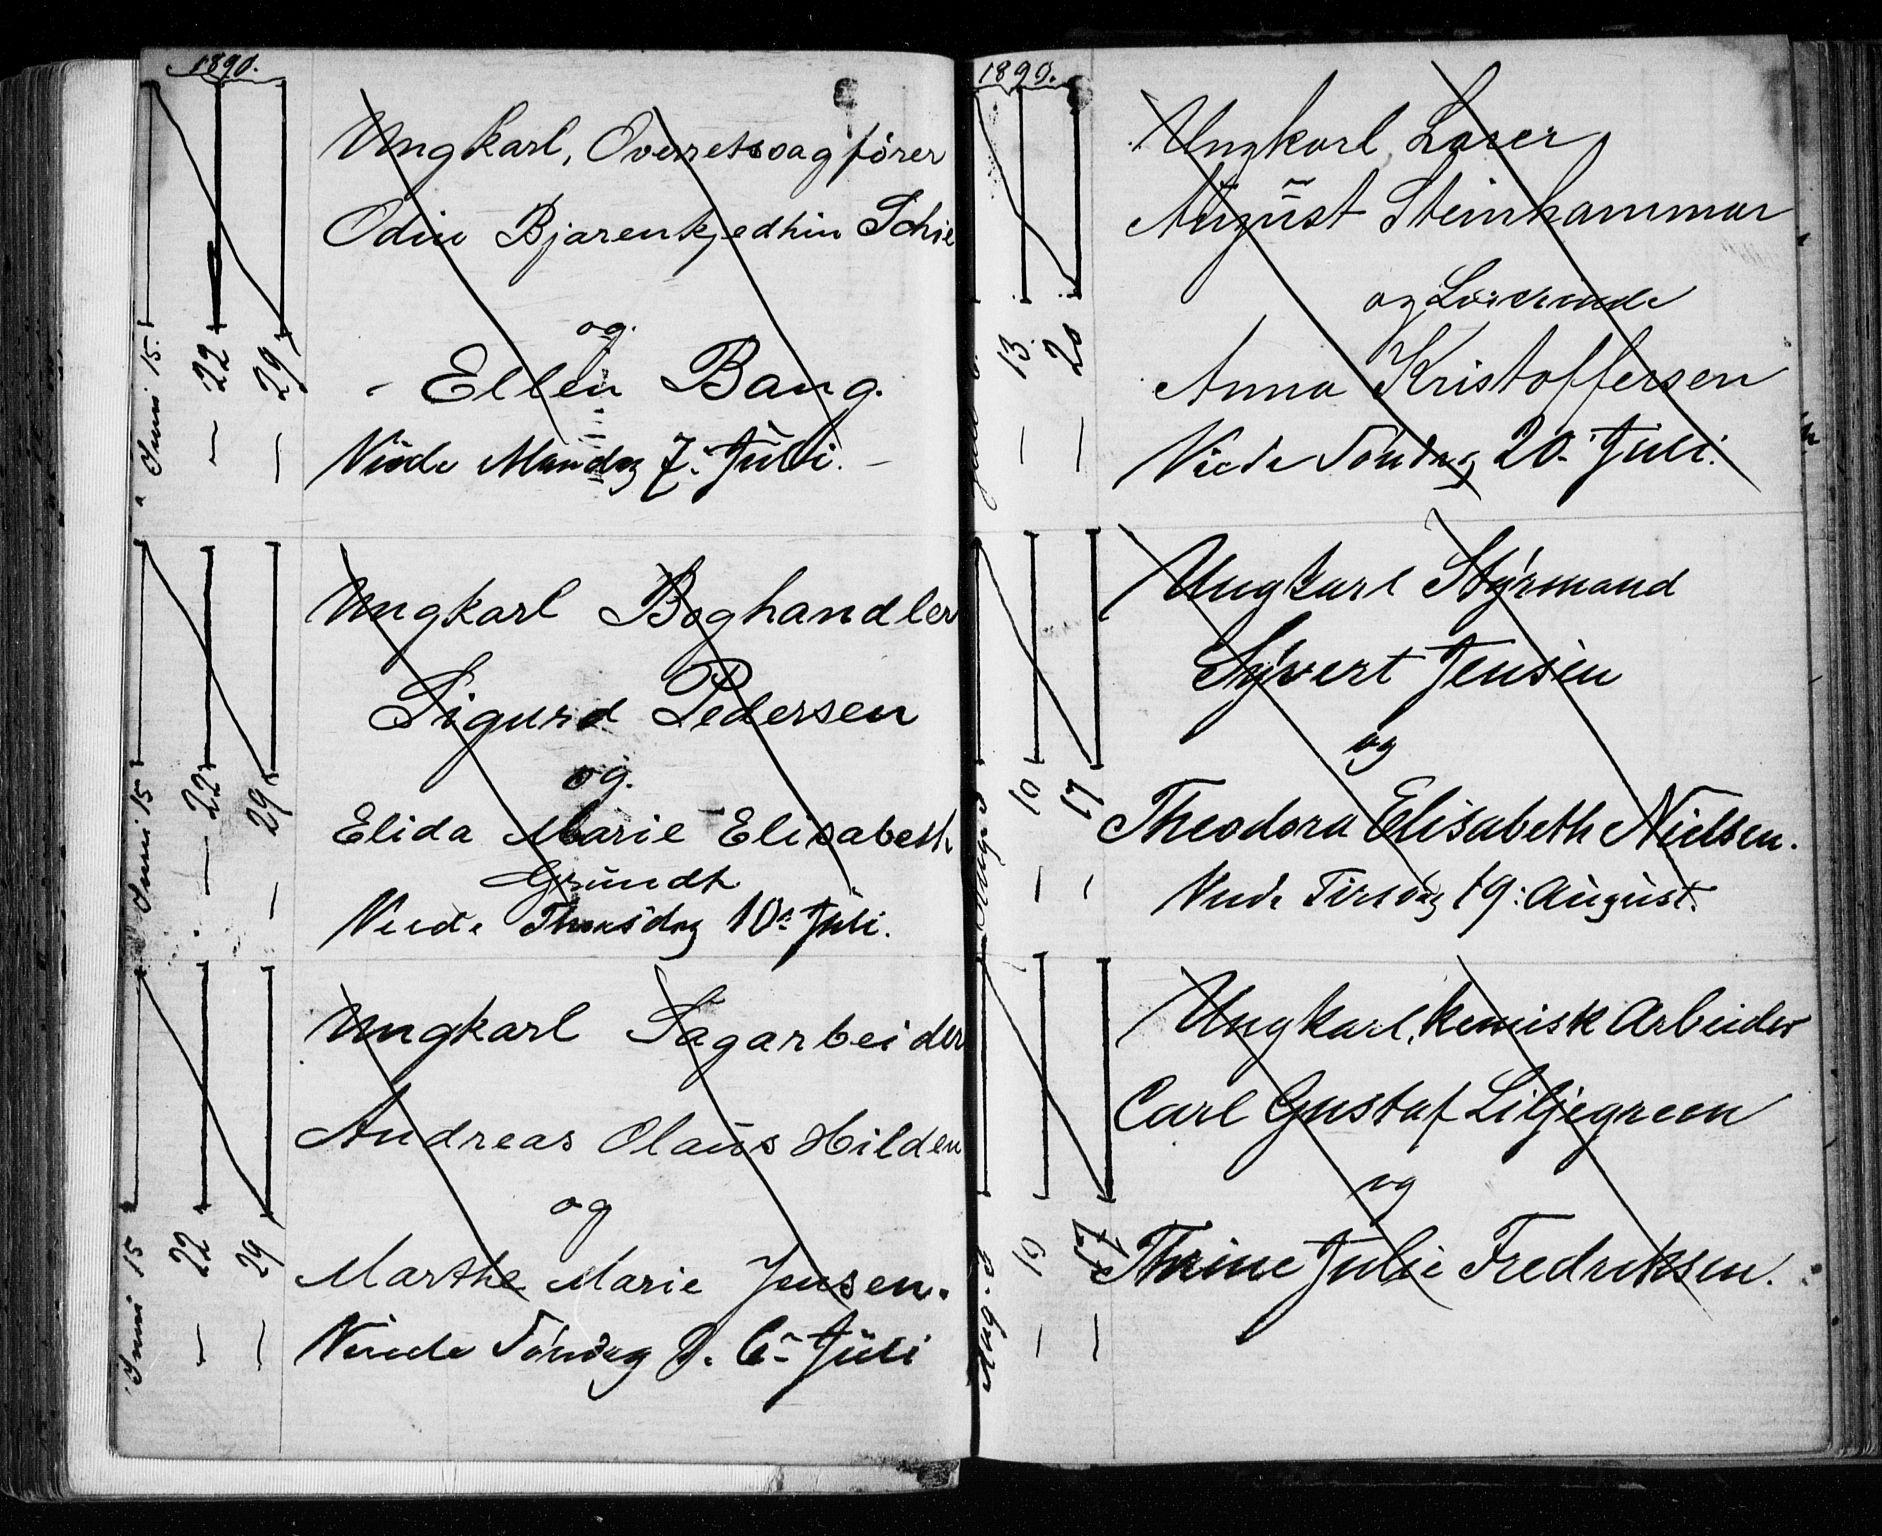 1890.
Ungkarl, Overretssagfører
Odin Bjarenkjedhin Schie
og.
Ellen Bang.
Viede Mandag 7. Juli.
Juni 15.
— 22
— 29
Ungkarl Boghandler
Sigurd Pedersen
og.
Elida Marie Elisabeth
Grundt
Viede Thorsdag 10. Juli.
Juni 15
— 22
— 29
Ungkarl Sagarbeider
Andreas Olaus Hilden
og
Marthe Marie Jensen.
Viede Søndag d. 6. Juli
Juni 15
— 22
— 29
1890.
Ungkarl, Løser
August Steinhammar
og
Anna Kristoffersen
Viede Søndag 20. Juli.
— 13.
— 20
Ungkarl Styrmand
Syvert Jensen
og
Theodora Elisabeth Nielsen.
Viede Tirsdag 19. August.
— 10
— 17
Ungkarl, kemisk Arbeider
Carl Gustaf Liljegreen
og
Thrine Julie Fredriksen.
— 10
— 17